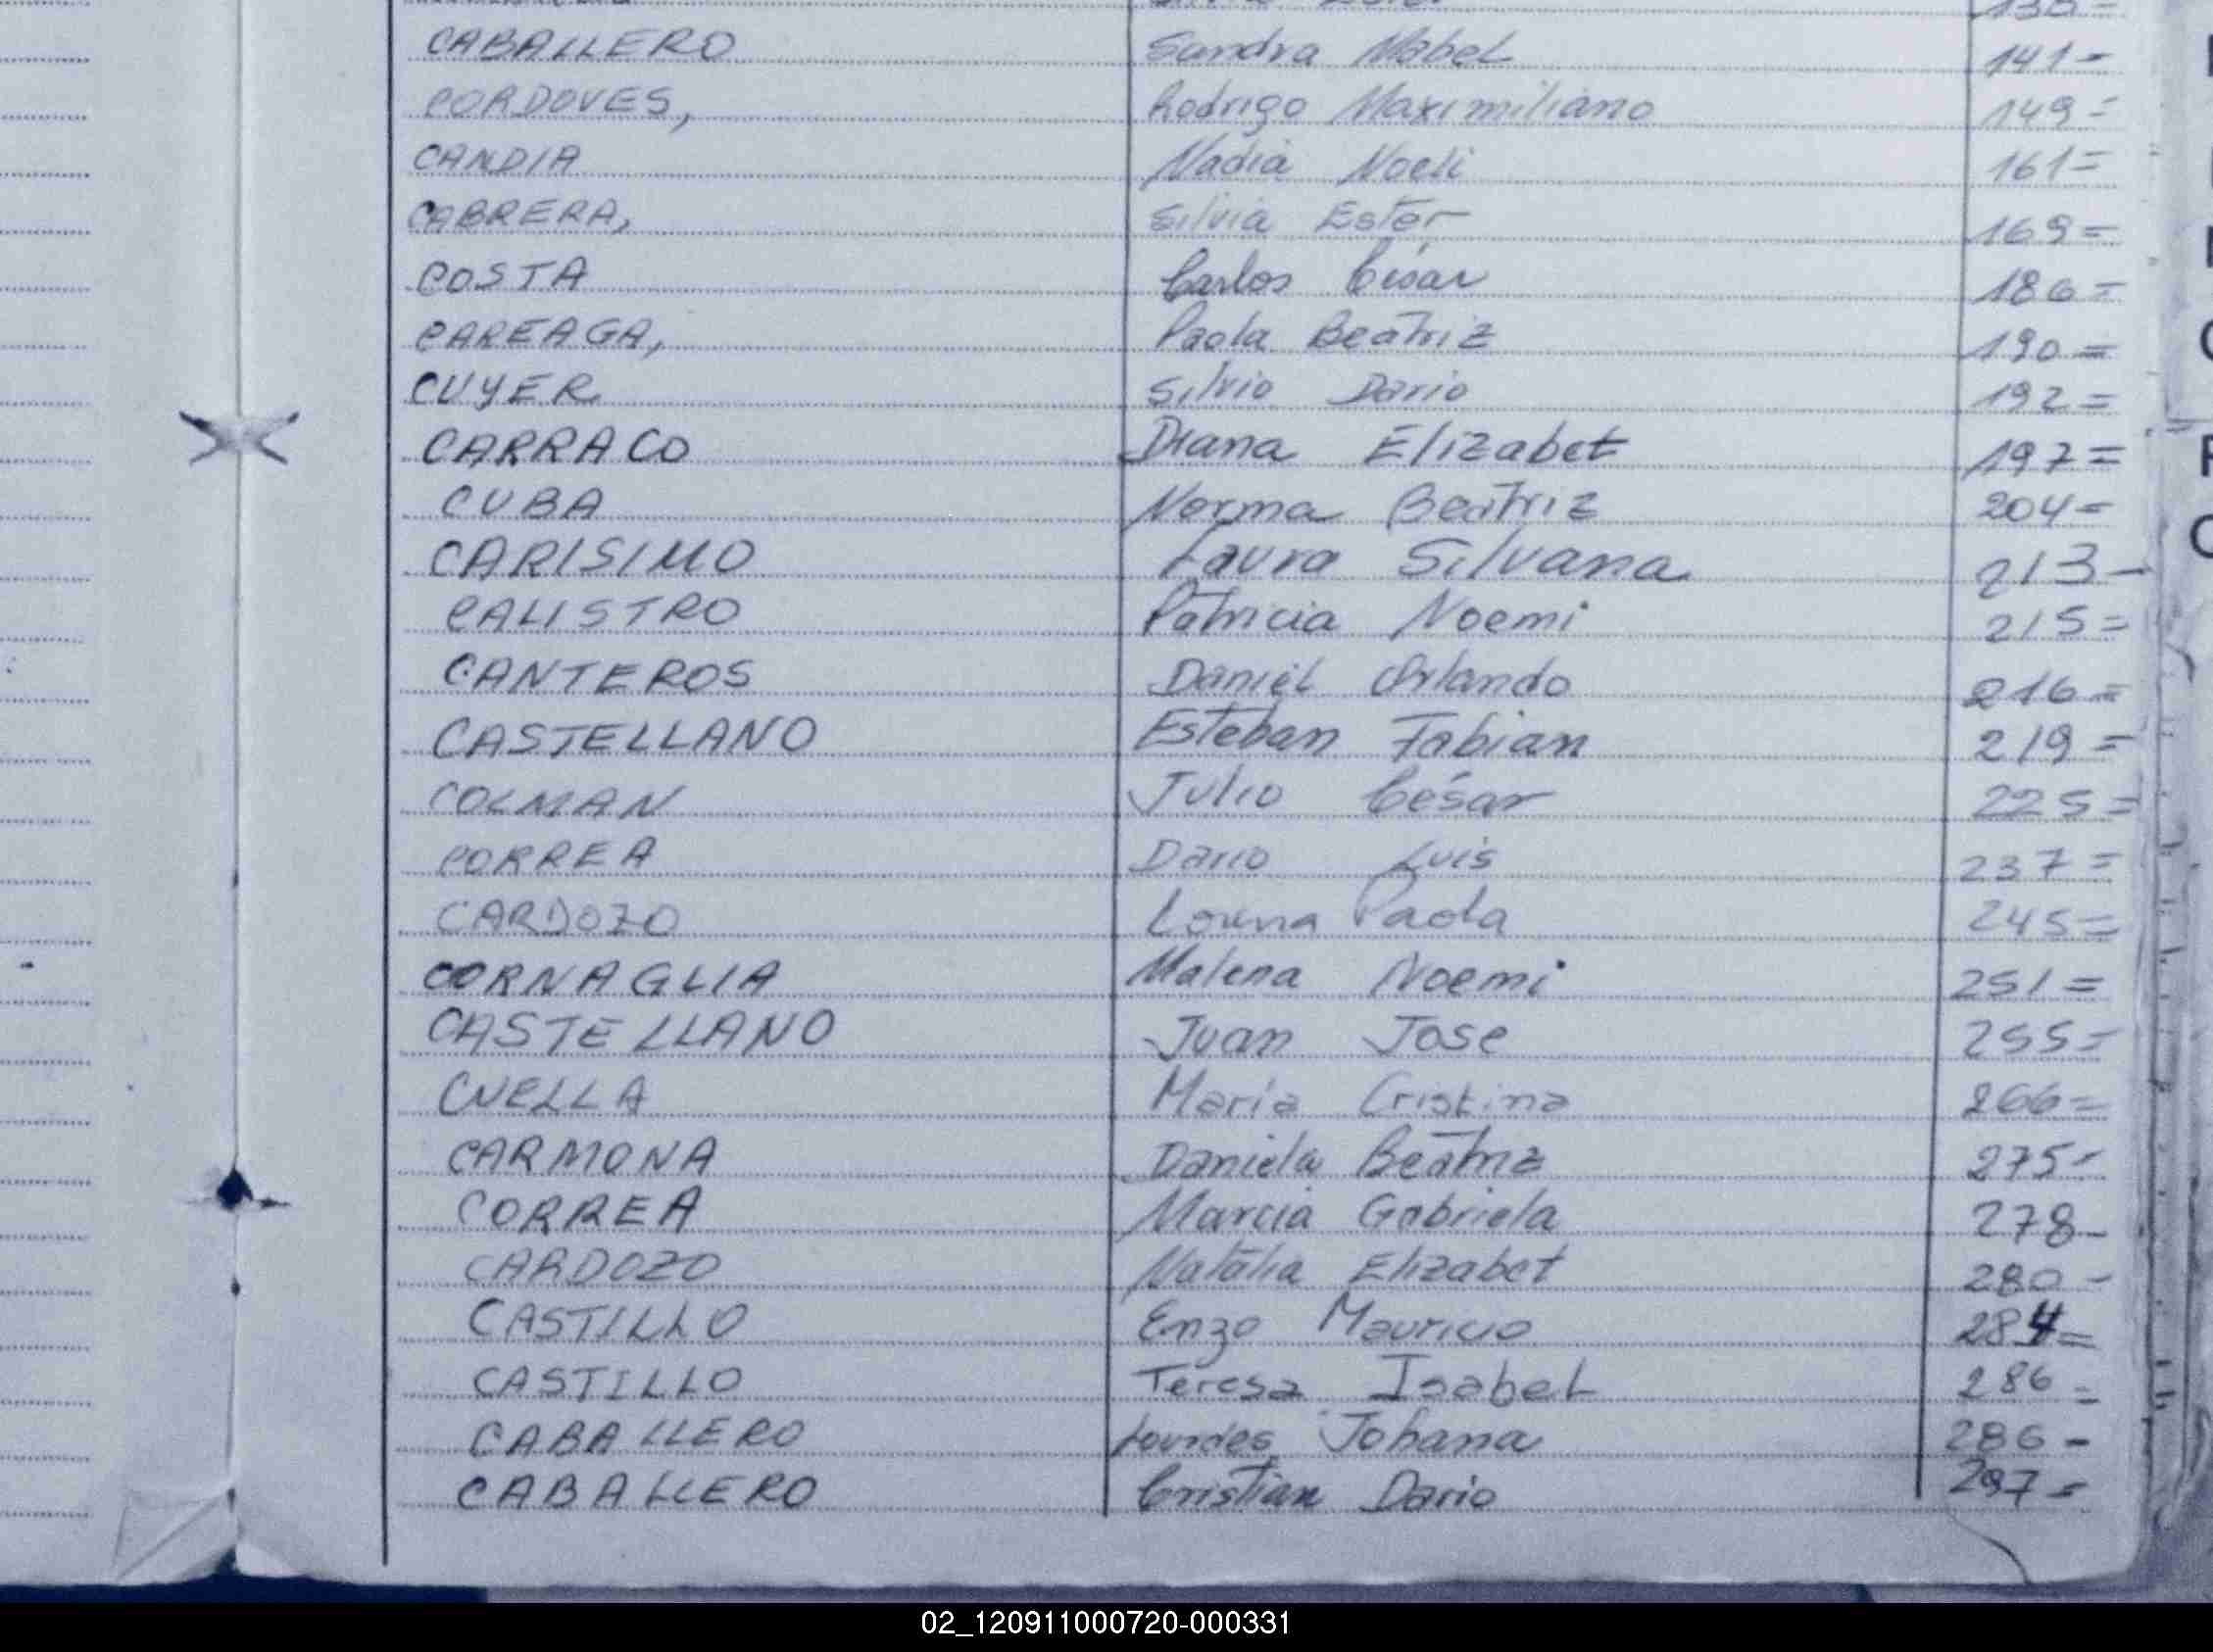 CABALLERO Sandra Mabel 141=
CORDOVES, Rodrigo Maximiliano 149=
CANDIA Nadia Noeli 161=
CABRERA, Silvia Ester 169=
COSTA Carlos César 186=
CAREAGA, Paola Beatriz 190=
CUYER Silvio Dario 192=
CARRACO Diana Elizabet 197=
CUBA Norma Beatriz 204=
CARISIMO Laura Silvana 213-
CALISTRO Patricia Noemi 215=
CANTEROS Daniel Orlando 216=
CASTELLANO Esteban Fabian 219=
COLMAN Julio César 225=
CORREA Dario Luis 237=
CARDOZO Lorena Paola 245=
CORNAGLIA Malena Noemi 251=
CASTELLANO Juan Jose 255=
CUELLA Maria Cristina 266=
CARMONA Daniela Beatriz 275=
CORREA Marcia Gabriela 278-
CARDOZO Natalia Elizabet 280-
CASTILLO Enzo Mauricio 284=
CASTILLO Teresa Isabel 286=
CABALLERO Lourdes Johana 286-
CABALLERO Cristian Dario 297=
02_120911000720-000331